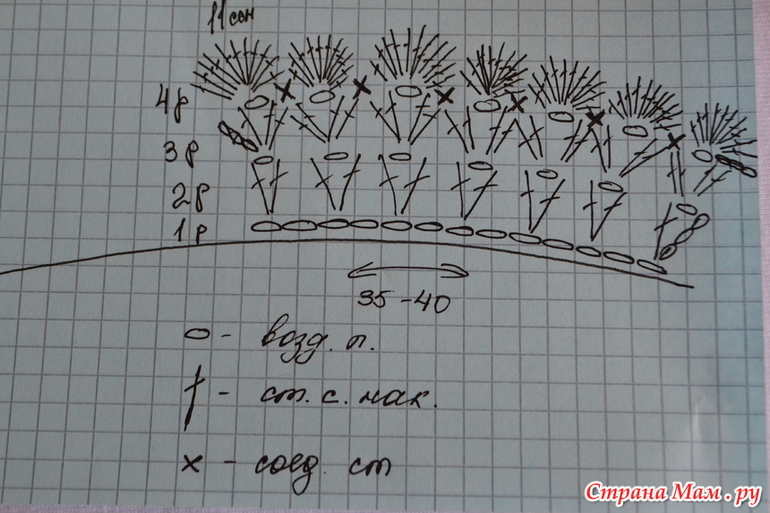 11 ссн
4р
3р
2р
1р
35-40
- возд. п.
- ст. с. нак.
х - соед. ст
Страна Мам.ру